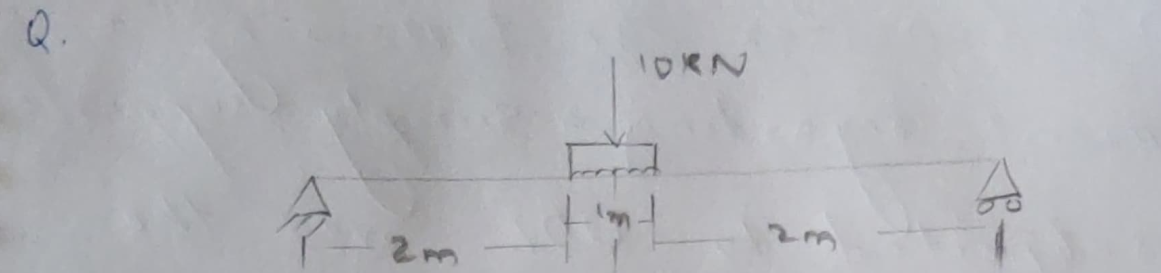 Q.
10KN
1m
2m
2m